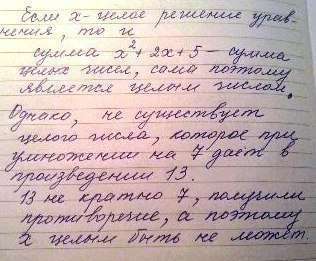 Если x - целое решение урав-
нения, то и
сумма x²+2x+5 - сумма
целых чисел, сама поэтому
является целым числом.
Однако, не существует
целого числа, которое при
умножении на 7 даёт в
произведении 13.
13 не кратно 7, получили
противоречие, а поэтому
x целым быть не может.